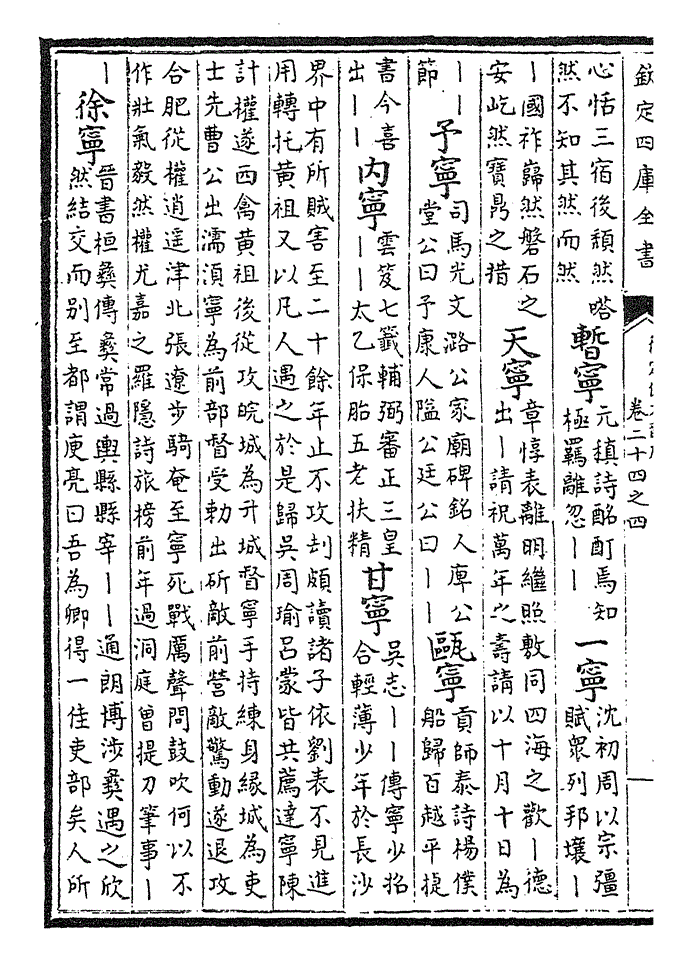 欽定四庫全書
卷二十四之四
心恬三宿後頹然嗒
然不知其然而然
暫寧
元稹詩酩酊焉知
極羈離忽丨丨
一寧
沈初周以宗彊
賦衆列邦壤丨
丨國祚巋然磐石之
安屹然寶鼎之措
天寧
章惇表離明繼照敷同四海之歡丨德
出丨請祝萬年之壽請以十月十日為
丨丨
節
予寧
司馬光文潞公家廟碑銘人庳公
堂公曰予康人隘公廷公曰丨丨
甌寧
貢師泰詩楊僕
船歸百越平捷
書今喜
出丨丨
内寧
雲笈七籤輔弼審正三皇
丨丨太乙保胎五老扶精
甘寧
吳志丨丨傳寧少招
合輕薄少年於長沙
界中有所賊害至二十餘年止不攻刦頗讀諸子依劉表不見進
用轉托黃祖又以凡人遇之於是歸吳周瑜呂蒙皆共薦達寧陳
計權遂西禽黃祖後從攻皖城為升城督寧手持練身緣城為吏
士先曹公出濡湏寧為前部督受勅出斫敵前營敵驚動遂退攻
合肥從權逍遥津北張遼步騎奄至寧死戰厲聲問鼓吹何以不
作壯氣毅然權尤嘉之羅隱詩旅榜前年過洞庭曾提刀筆事丨
丨
徐寧
晉書桓彝傳彝常過輿縣縣宰丨丨通朗博涉彝遇之欣
然結交而别至都謂庾亮曰吾為卿得一佳吏部矣人所